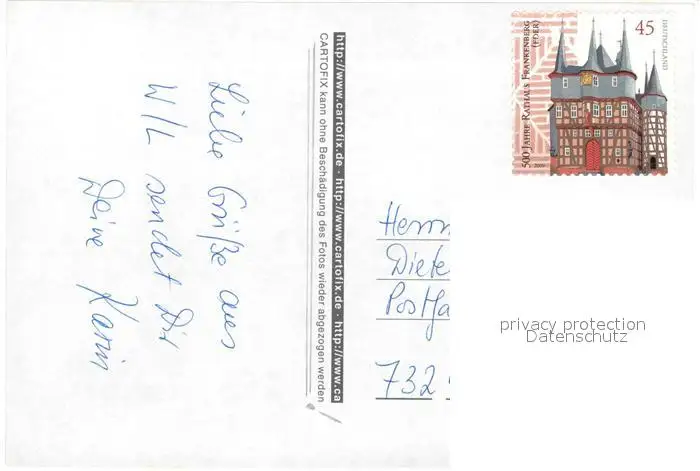 Liebe Grüße aus
W/L sendet Dir
Deine Karin
http://www.cartofix.de · http://www.cartofix.de · http://www.ca
CARTOFIX kann ohne Beschädigung des Fotos wieder abgezogen werden
45
DEUTSCHLAND
500 JAHRE RATHAUS FRANKENBERG
(EDER)
2009
Herrn
Diete
Postfa
732
privacy protection
Datenschutz